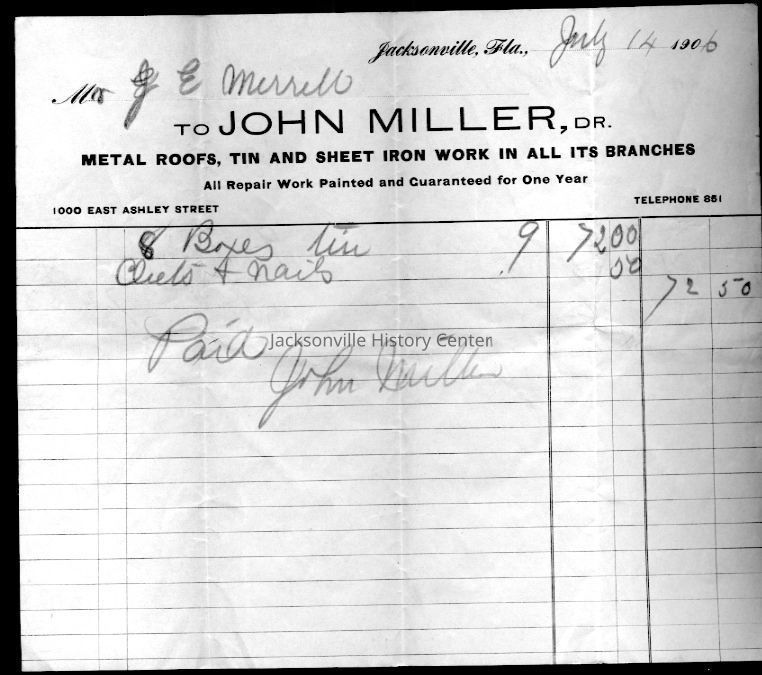 Jacksonville, Fla., July 14 1906
Mr J E Merrell
TO JOHN MILLER, DR.
METAL ROOFS, TIN AND SHEET IRON WORK IN ALL ITS BRANCHES
All Repair Work Painted and Guaranteed for One Year
1000 EAST ASHLEY STREET TELEPHONE 851
8 Boxes tin 9 72 00
& nails 50
72 50
Paid
Jacksonville History Center
John Miller